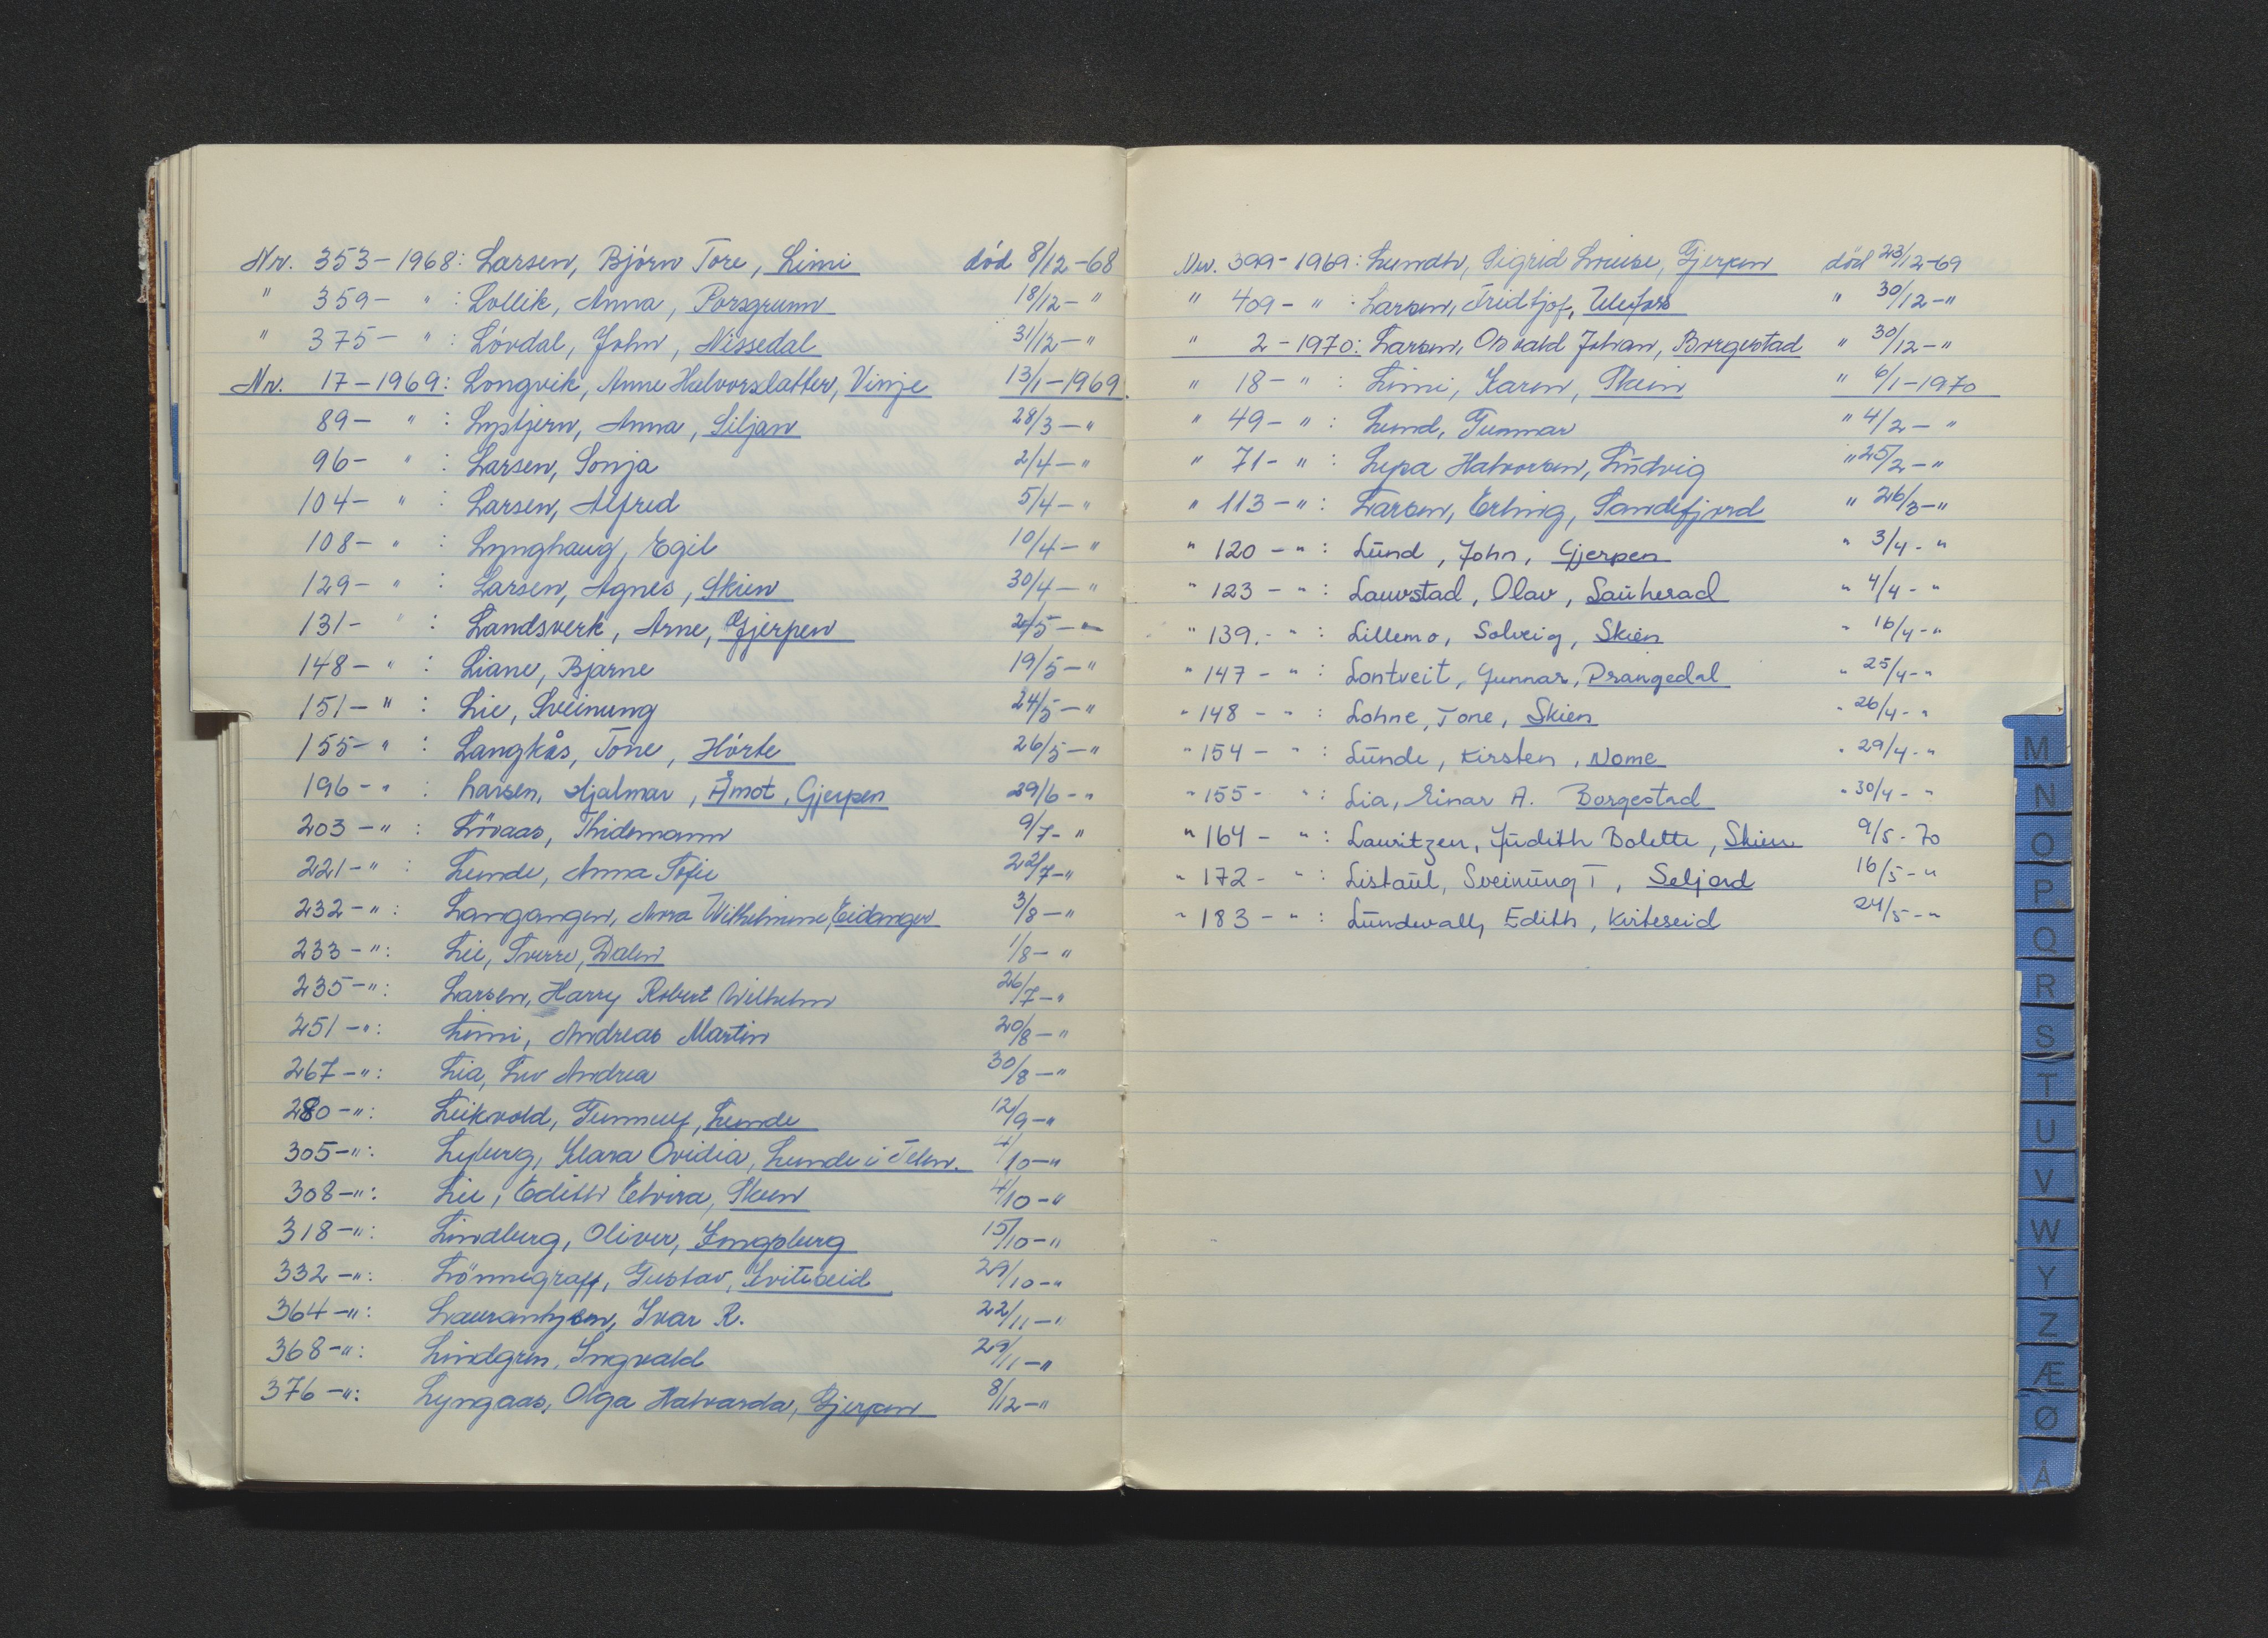 Nr. 353 - 1968: Larsen, Björn Tore, Limi död 8/12-68
" 359 - " : Lollik, Anna, Porsgrunn 18/12 - "
" 375 - " : Lövdal, John, Nissedal 31/12 - "
Nr. 17 - 1969: Longvik, Anne Halvorsdatter, Vinje 13/1 - 1969.
89 - " : Lystjern, Anna, Siljan 28/3 - "
96 - " : Larsen, Sonja 2/4 - "
104 - " : Larsen, Alfred 5/4 - "
108 - " : Lynghaug, Egil 10/4 - "
129 - " : Larsen, Agnes, Skien 30/4 - "
131 - " : Landsverk, Arne, Gjerpen /5 - "
148 - " : Liane, Bjarne 19/5 - "
151 - " : Lie, Sveinung 24/5 - "
155 - " : Langkås, Tone, Hörte 26/5 - "
196 - " : Larsen, Hjalmar, Åmot, Gjerpen 29/6 - "
203 - " : Lövaas, Thidemann 9/7 - "
221 - " : Lunde, Anna Sofie 22/7 - "
232 - " : Langangen, Anna Wilhelmine, Eidanger 3/8 - "
233 - " : Lie, Sverre, Dalen 1/8 - "
235 - " : Larsen, Harry Robert Wilhelm 26/7 - "
251 - " : Limi, Andreas Martin 20/8 - "
267 - " : Lia, Liv Andrea 30/8 - "
280 - " : Leikvold, Gunnulf, Lunde 12/9 - "
305 - " : Lyberg, Klara Ovidia, Lunde i Telem. 4/10 - "
308 - " : Lie, Edith Elvira, Skien 4/10 - "
318 - " : Lindberg, Oliver, Kongsberg 15/10 - "
332 - " : Lönnegraff, Gustav, Kviteseid 29/10 - "
364 - " : Laurantzon, Ivar R. 22/11 - "
368 - " : Lindgren, Ingvald 29/11 - "
376 - " : Lyngaas, Olga Halvarda, Gjerpen 8/12 - "
Nr. 399 - 1969: Lundh, Sigrid Louise, Gjerpen död 23/12-69
" 409 - " : Larsen, Fridtjof, Ulefoss " 30/12 - "
" 2 - 1970: Larsen, Osvald Johan, Borgestad " 30/12 - "
" 18 - " : Limi, Karen, Skien " 6/1 - 1970
" 49 - " : Lund, Gunnar " 4/2 - "
" 71 - " : Lepa Halvorsen, Ludvig " 25/2 - "
" 113 - " : Larsen, Erling, Sandefjord " 26/3 - "
" 120 - " : Lund, John, Gjerpen " 3/4 - "
" 123 - " : Lauvstad, Olav, Sauherad " 4/4 - "
" 139. - " : Lillemo, Solveig, Skien " 16/4 - "
" 147 - " : Lontveit, Gunnar, Drangedal " 25/4 - "
" 148 - " : Lohne, Tone, Skien " 26/4 - "
" 154 - " : Lunde, Kirsten, Nome " 29/4 - "
" 155 - " : Lia, Einar A. Borgestad " 30/4 - "
" 164 - " : Lauritzen, Judith Bolette, Skien 9/5 - 70
" 172 - " : Listaul, Sveinung T, Seljord 16/5 - "
" 183 - " : Lundwall, Edith, Kviteseid 24/5 - "
M
N
O
P
Q
R
S
T
U
V
W
Y
Z
Æ
Ø
Å